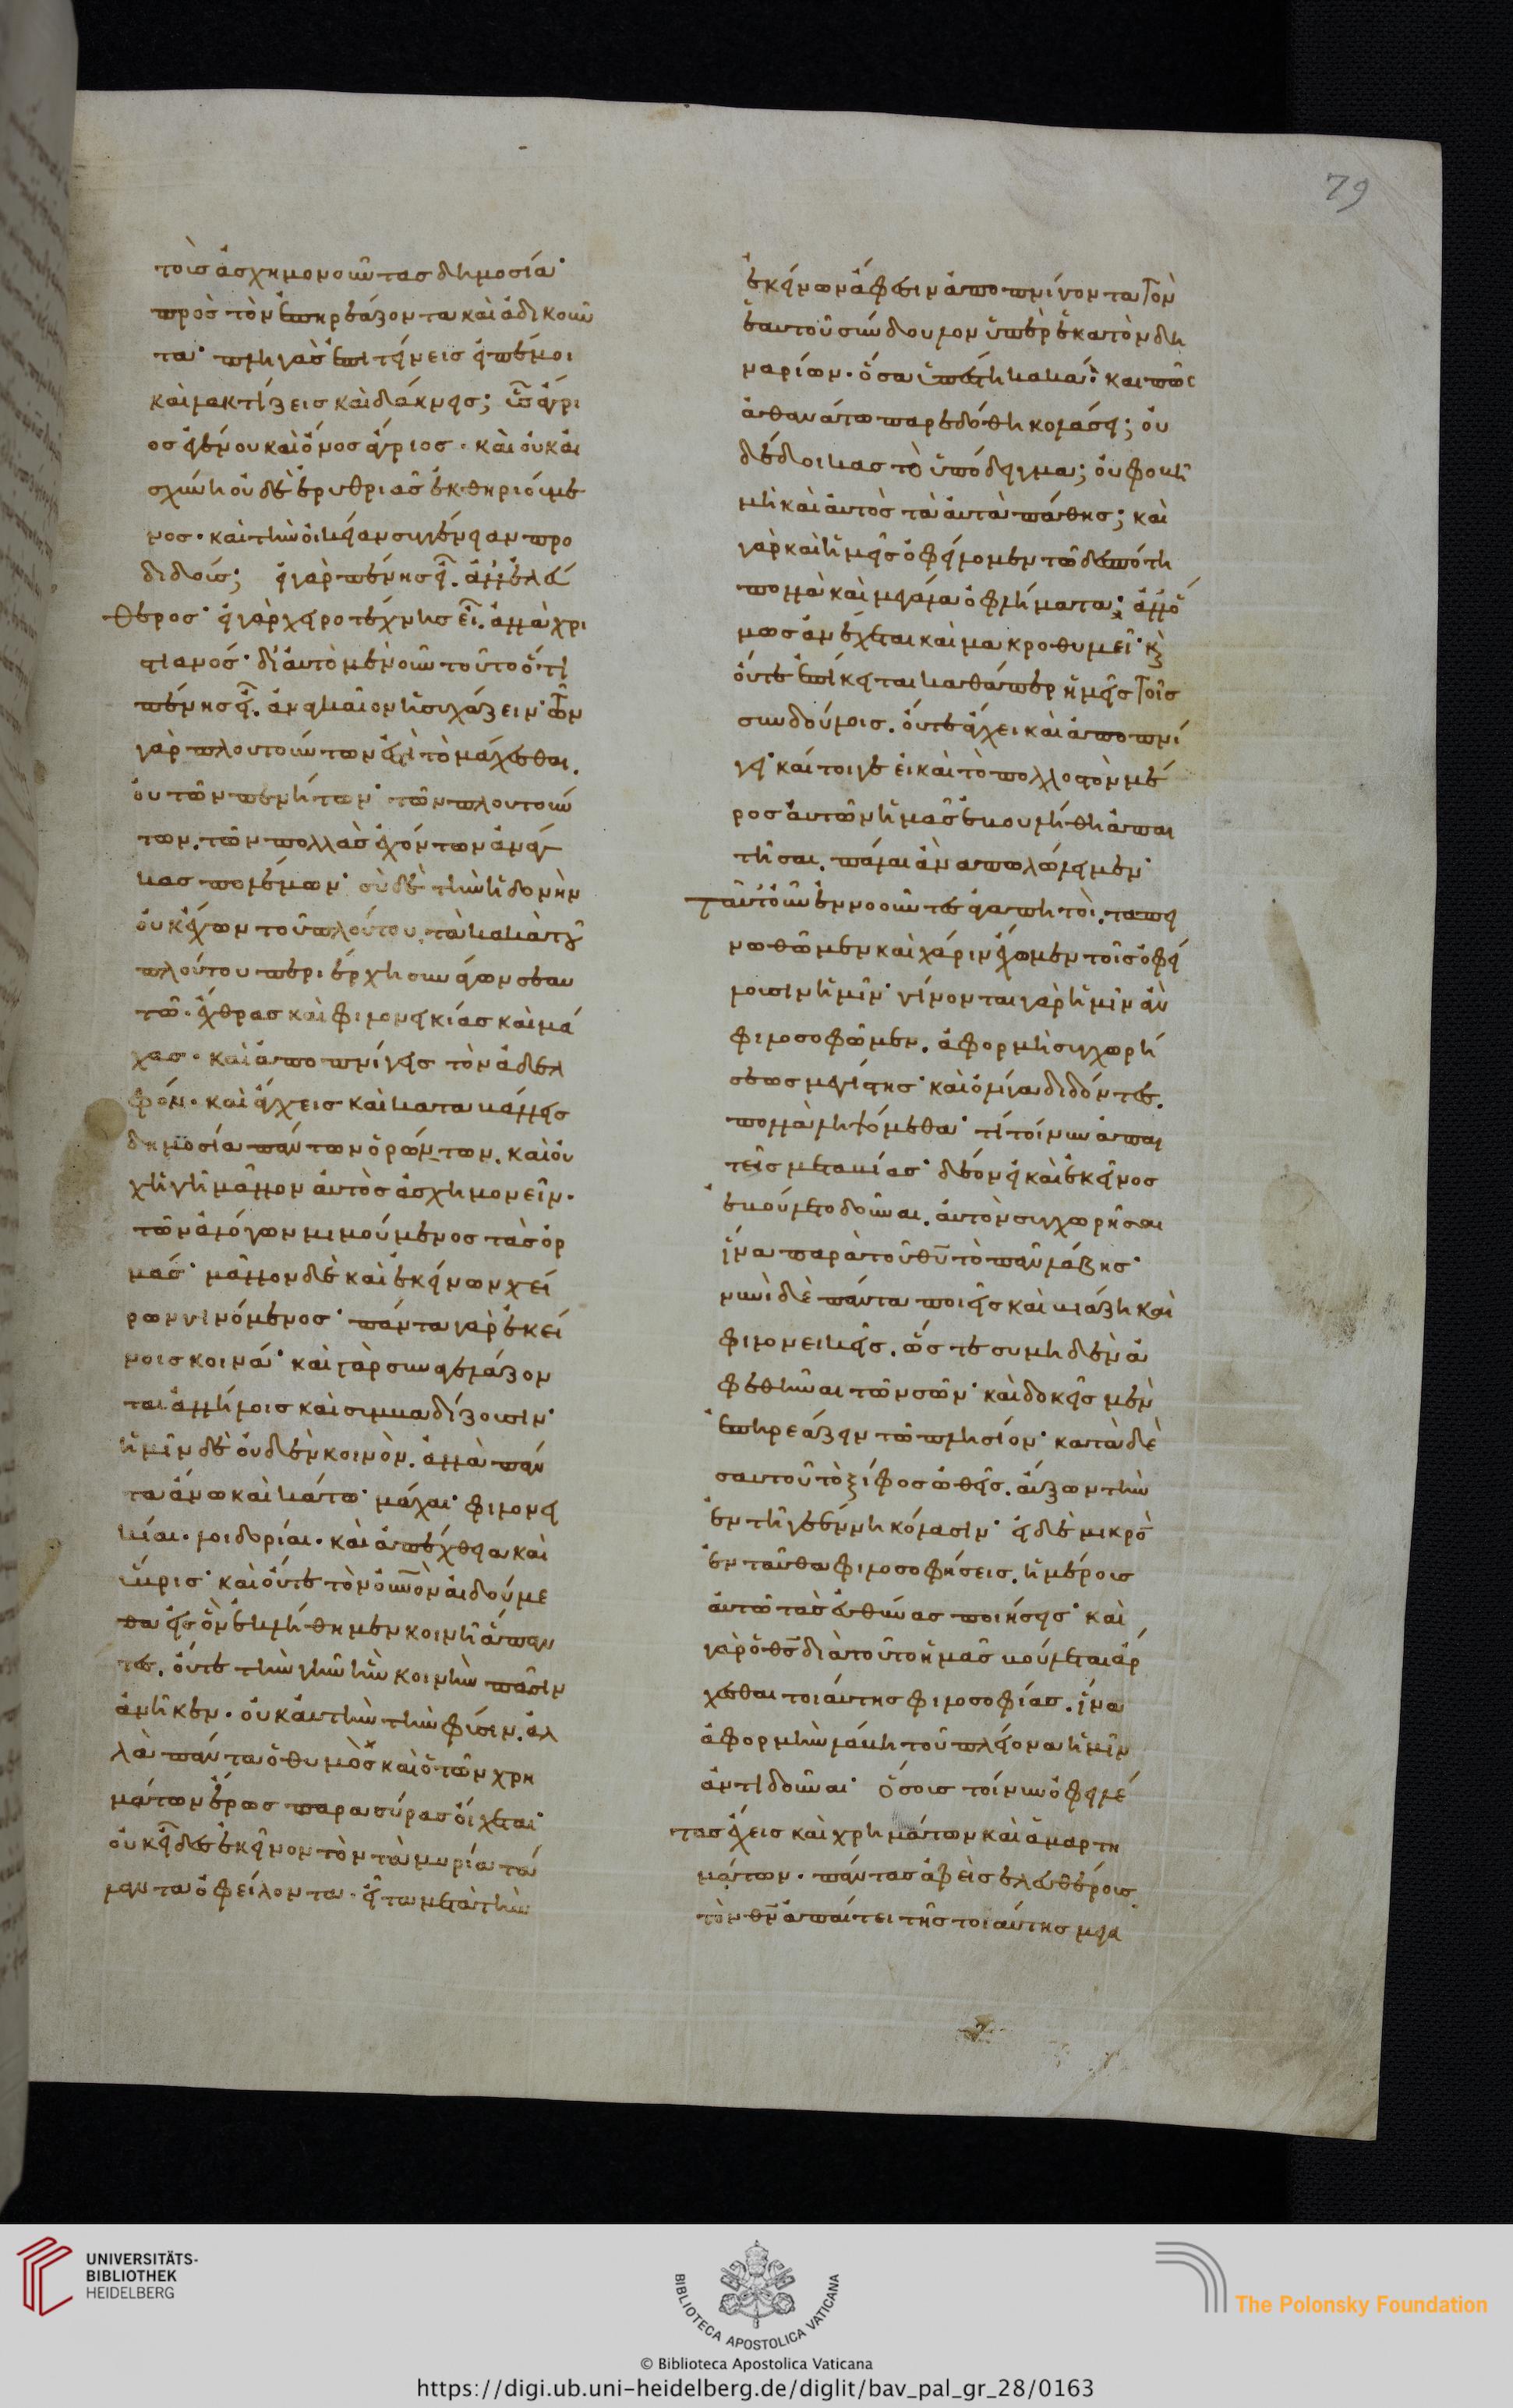 79
τοὺσ ἀσχημονοῦντας δημοσίᾳ·
πρὸσ τὸν ἐπηρεάζοντα καὶ ἀδικοῦν
τα· πληγὰσ ἐπιτείνεισ εἰπέ μοι
καὶ λακτίζεισ καὶ δάκνεισ; ὗσ ἄγρι
οσ γέγονου καὶ ὄνοσ ἄγριοσ· καὶ οὐκ αἰ
σχύνη οὐδὲ ἐρυθριᾶσ ἐκθηριούμε
νοσ· καὶ τὴν οἰκείαν συγγένειαν προ
διδούσ; εἰ γὰρ πένησ εἶ. ἀλλ' ἐλεύ
θεροσ· εἰ γὰρ χειροτέχνησ εἶ. ἀλλὰ χρι
στιανόσ· δι' αὐτὸ μὲν οὖν τοῦτο ὅτι
πένησ εἶ. ἀναγκαῖον ἡσυχάζειν· τῶν
γὰρ πλουτούντων ἐστὶ τὸ μάχεσθαι.
οὐ τῶν πενήτων· τῶν πλουτούν
των. τῶν πολλὰσ ἐχόντων ἀνάγ
κασ πολέμων· σὺ δὲ τὴν ἡδονὴν
οὐκ ἔχων τοῦ πλούτου. τὰ κακὰ τοῦ
πλούτου περιέρχη συνάγων σεαυ
τῶ· ἔχθρασ καὶ φιλονεικίασ καὶ μά
χασ· καὶ ἀποπνίγεισ τὸν ἀδελ
φόν· καὶ ἄγχεισ καὶ καταβάλλεισ
δημοσία πάντων ὁρώντων. καὶ οὐ
χ ἡγῆ μᾶλλον αὐτὸσ ἀσχημονεῖν·
τῶν ἀλόγων μιμούμενοσ τὰσ ὁρ
μάσ· μᾶλλον δὲ καὶ ἐκείνων χεί
ρων γινόμενοσ· πάντα γὰρ ἐκεί
νοισ κοινά· καὶ γὰρ συναγελάζον
ται ἀλλήλοισ καὶ συμβαδίζουσιν·
ἡμῖν δὲ οὐδὲν κοινὸν. ἀλλὰ πάν
τα ἄνω καὶ κάτω· μάχαι· φιλονει
κίαι· λοιδορίαι· καὶ ἀπέχθεια καὶ
ὕβρισ· καὶ οὔτε τὸν οὐνὸν αἰδούμε
θα εἰσ ὃν ἐκλήθημεν κοινῆ ἅπαν
τεσ. οὔτε τὴν γῆν ἣν κοινὴν πᾶσιν
ἀνῆκεν· οὐκ αὐτὴν τὴν φύσιν. ἀλ
λὰ πάντα ὁ θυμὸσ καὶ ὁ τῶν χρη
μάτων ἔρωσ παρασύρασ οἴχεται·
οὐκ εἶδεσ ἐκεῖνον τὸν τὰ μυρία τά
λαντα ὀφείλοντα· εἶτα μετὰ τὴν
ἐκείνων ἄφεσιν ἀποπνίγοντα τὸν
ἑαυτοῦ σύνδουλον ὑπὲρ ἑκατὸν δη
ναρίων. ὅσα ὑπέστη κακά; καὶ πῶς
ἀθανάτω παρεδόθη κολάσει; οὐ
δέδοικασ τὸ ὑπόδειγμα; οὐ φοβῆ
μὴ καὶ αὐτὸσ τὰ αὐτὰ πάθησ; καὶ
γὰρ καὶ ἡμεῖσ ὀφείλομεν τῶ δεσπότη
πολλὰ καὶ μεγάλα ὀφλήματα; ἀλλ' ὅ
μωσ ἀνέχεται καὶ μακροθυμεῖ· καὶ
οὔτε ἐπίκειται καθάπερ ἡμεῖσ τοῖσ
συνδούλοισ. οὔτε ἄγχει καὶ ἀποπνί
γει· καίτοιγε εἰ καὶ τὸ πολλοστὸν μέ
ροσ αὐτῶν ἡμᾶσ ἐβουλήθη ἀπαι
τῆσαι. πάλαι ἂν απωλώλειμεν·
Ταῦτ' οὖν ἐννοοῦντεσ ἀγαπητοὶ. ταπει
νωθῶμεν καὶ χάριν ἔχωμεν τοῖσ ὀφεί
λουσιν ἡμῖν· γίνονται γὰρ ἡμῖν ἂν
φιλοσοφῶμεν. ἀφορμὴ συγχωρή
σεωσ μεγίστησ· καὶ ὀλίγα διδόντεσ.
πολλὰ ληψόμεθα· τί τοίνυν ἀπαι
τεῖσ μετὰ βίασ· δέον εἰ καὶ ἐκεῖνοσ
ἐβούλετο δοῦναι. αὐτὸν συγχωρῆσαι
ἵνα παρὰ τοῦ θῦ τὸ πᾶν λάβησ·
νυνὶ δὲ πάντα ποιεῖσ καὶ βιάζη καὶ
φιλονεικεῖσ. ὥστε συ μηδὲν ἀ
φεθῆναι τῶν σῶν· καὶ δοκεῖσ μὲν
ἐπηρεάζειν τῶ πλησίον· κατὰ δὲ
σαυτοῦ τὸ ξίφοσ ὠθεῖσ. αὔξων τὴν
ἐν τῆ γεέννη κόλασιν· εἰ δὲ μικρὸ
ἐνταῦθα φιλοσοφήσεισ. ἡμέρουσ
αὐτῶ τὰσ εὐθύνασ ποιήσεισ· καὶ
γὰρ ὁ θσ διὰ τοῦτο ἡμᾶσ βούλεται ἄρ
χεσθαι τοιαύτησ φιλοσοφίασ. ἵνα
ἀφορμὴν λάβη τοῦ πλείονα ἡμῖν
ἀντιδοῦναι· ὅσουσ τοίνυν ὀφειλέ
τασ ἔχεισ καὶ χρημάτων καὶ ἁμαρτη
μάτων· πάντασ ἀφεὶσ ἐλευθέρουσ
τὸν θν ἀπαίτει τῆσ τοιαύτησ μεγα
UNIVERSITÄTS-
BIBLIOTHEK
HEIDELBERG
BIBLIOTECA APOSTOLICA VATICANA
The Polonsky Foundation
© Biblioteca Apostolica Vaticana
https://digi.ub.uni-heidelberg.de/diglit/bav_pal_gr_28/0163